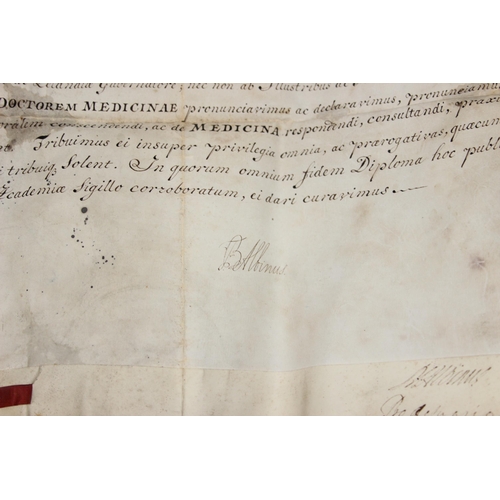 Zelandia Gubernatore, nec non ab Illustribus
DOCTOREM MEDICINAE pronunciavimus ac declaravimus, pronunciamu
conscendendi, ac de MEDICINA respondendi, consultandi,
Tribuimus ei insuper privilegia omnia, ac prærogativas, quæcum
tribuiq; Solent. In quorum omnium fidem Diploma hoc publ
Academiæ Sigillo corroboratum, ei dari curavimus
B Albinus
Albinus